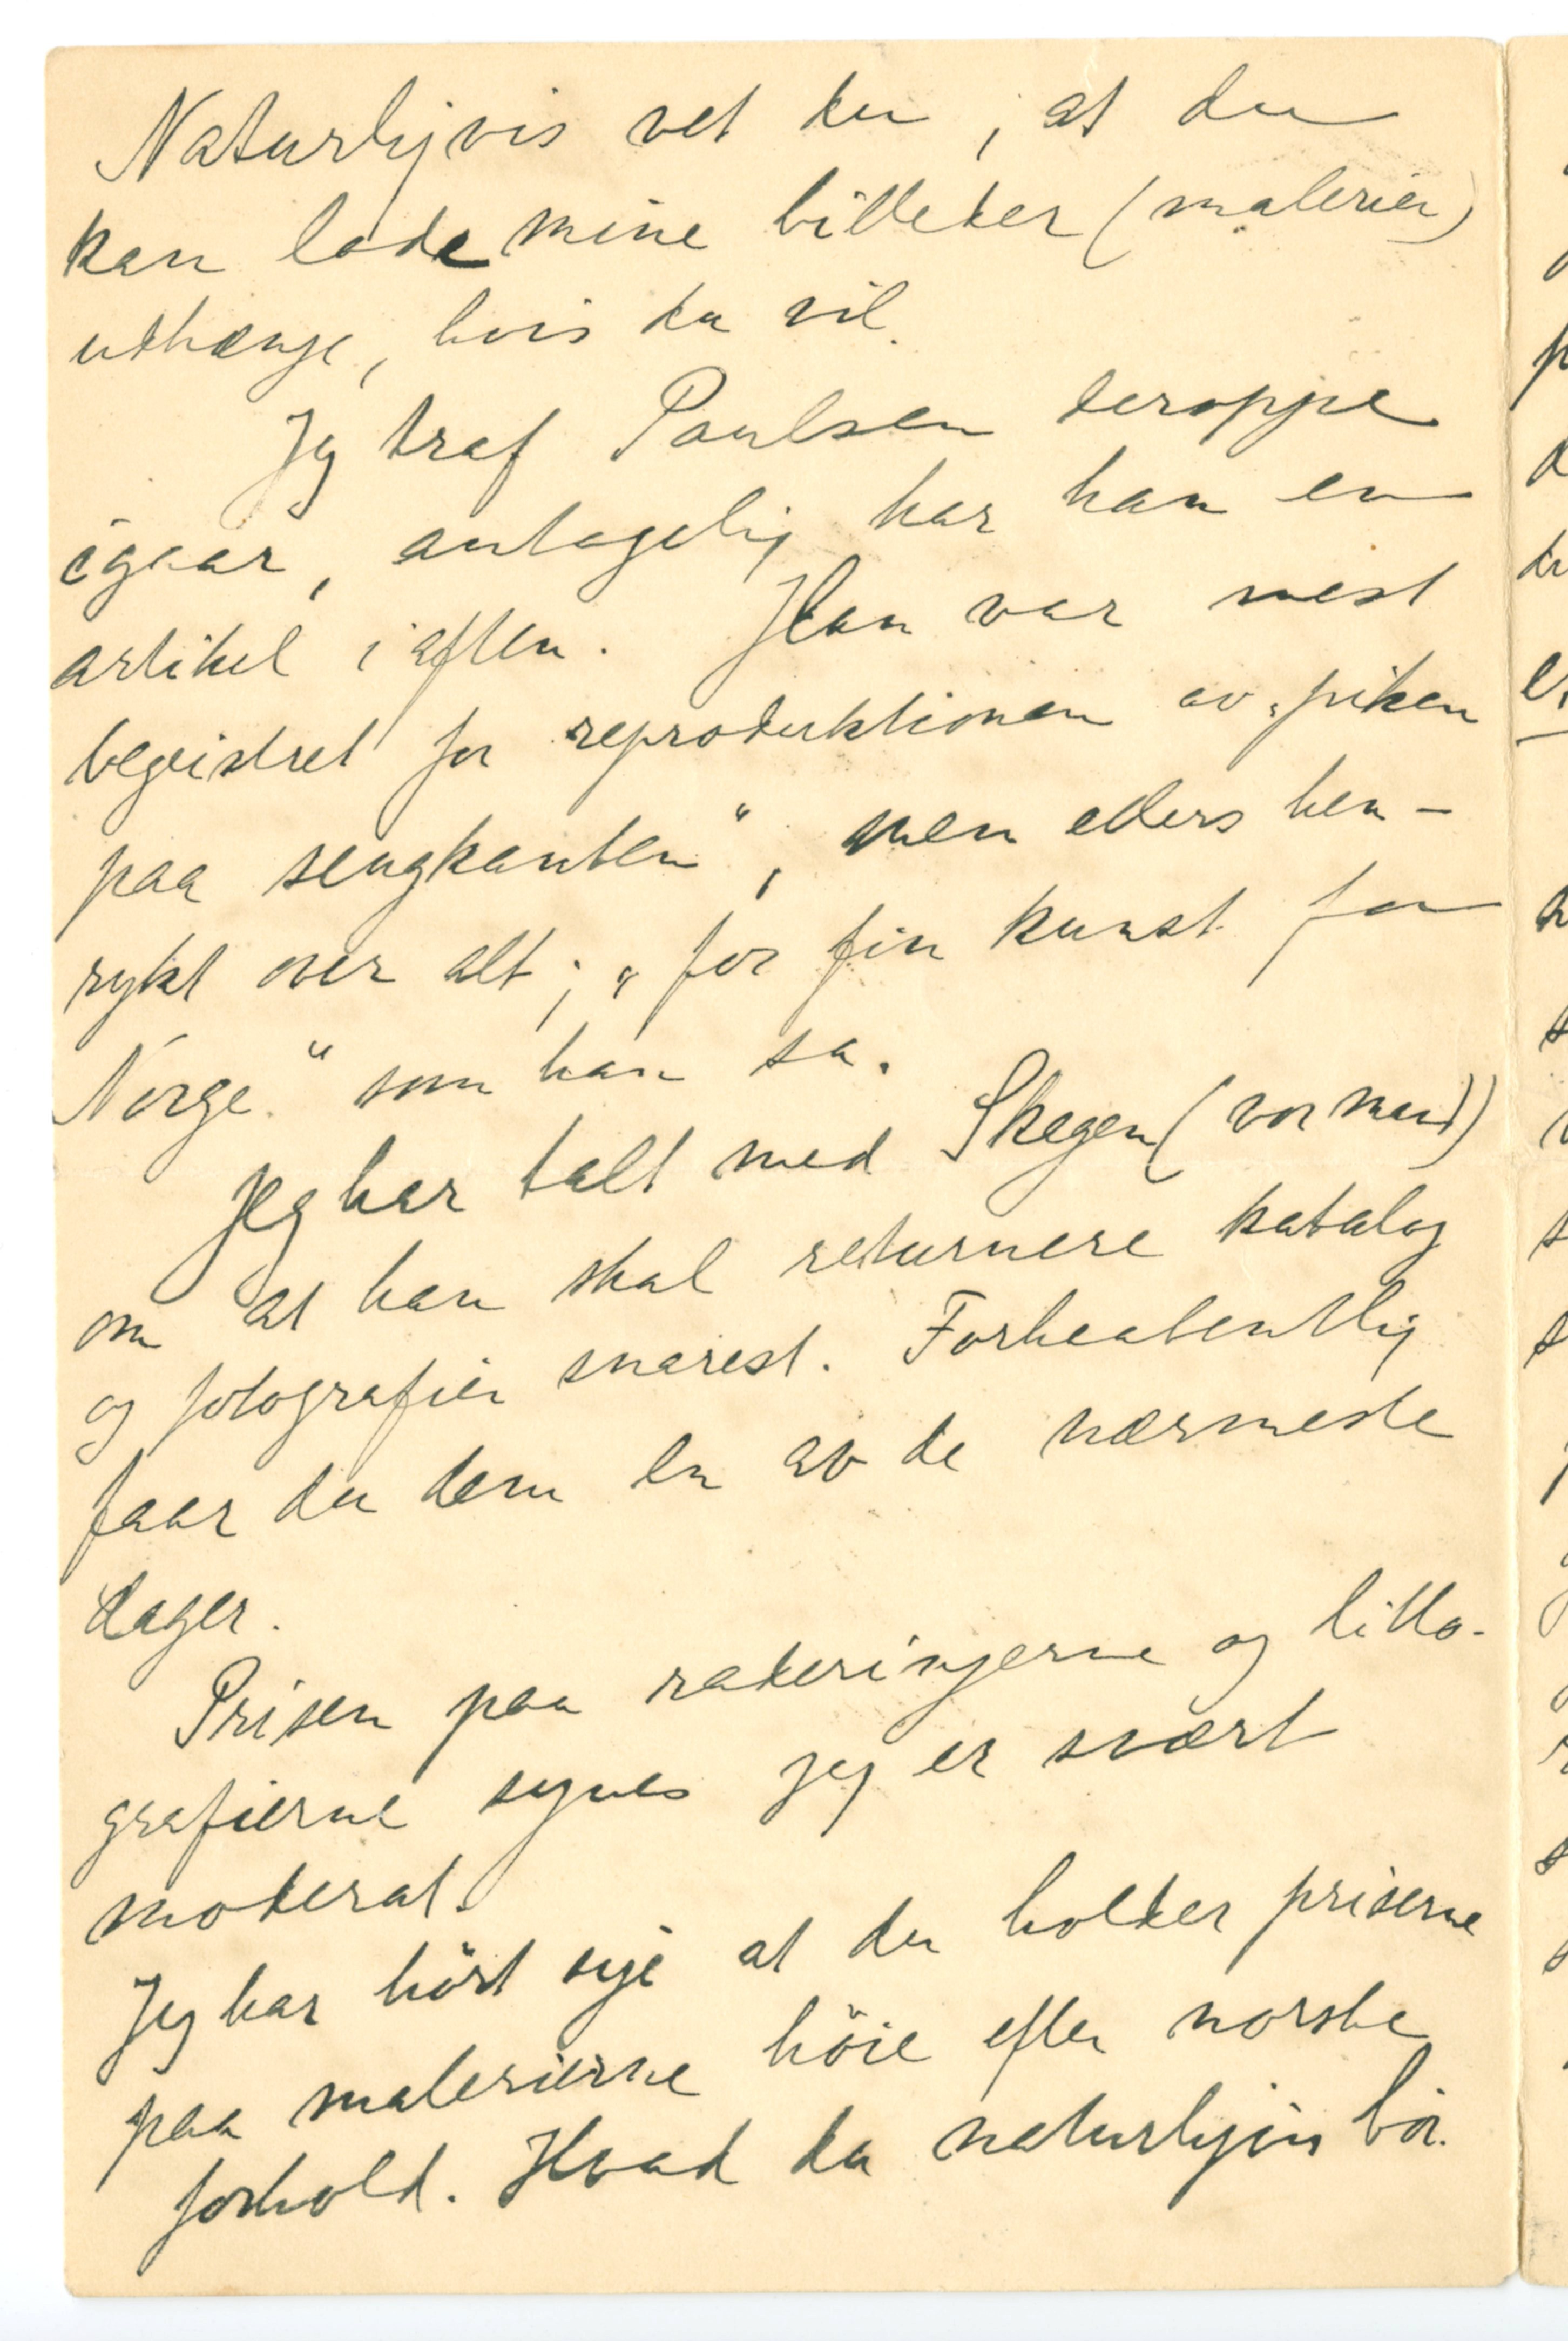 Naturligvis vet du, at du
kan lade mine billeder (malerier)
uthænge, hvis du vil.
Jeg traf Paulsen deroppe
igaar, antagelig har han en
artikel i aften. Han var mest
begeistret for reproduktionen av „piken
paa sengkanten“, men ellers hen-
rykt over alt; „for fin kunst for
Norge“ som han sa.
Jeg har talt med Skegen (vor mand)
om at han skal returnere katalog
og fotografier snarest. Forhaabentlig
faar du dem en av de nærmeste
dager.
Prisen paa raderingerne og litto-
grafierne synes jeg er svært
moderat.
Jeg har hört sige at du holder priserne
paa malerierne höie efter norske
forhold. Hvad du naturligvis bör.